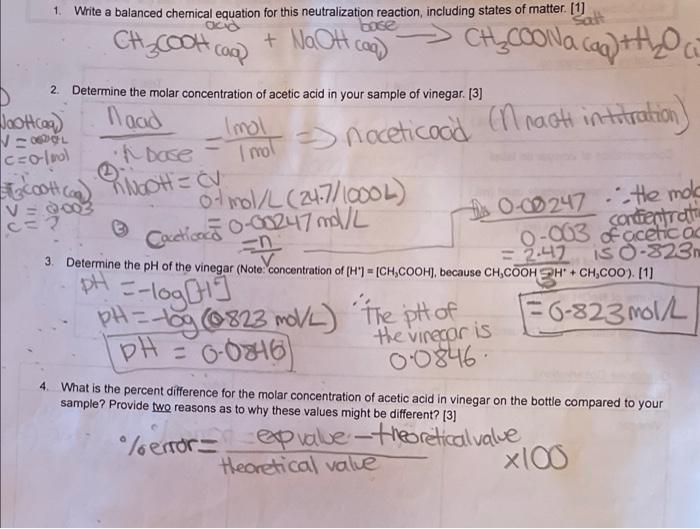 1. Write a balanced chemical equation for this neutralization reaction, including states of matter. [1]
acid base salt
CH3COOH (aq) + NaOH (aq) → CH3COONa (aq) + H2O (l
2. Determine the molar concentration of acetic acid in your sample of vinegar. [3]
NaOH(aq)
V =
C = 0.1mol
n acid / n base = 1mol / 1mol => n acetic acid (n naoh in titration)
② nNaOH = CV
0.1mol/L (24.7/1000L)
= 0.00247 mol/L
CH3COOH (aq)
V = 0.003
C = ?
③ C acetic acid = n / V
0.00247 / 0.003
= 2.47 / 3
= 0.823 mol/L
∴ the mola
concentrati
of acetic ac
is 0.823m
3. Determine the pH of the vinegar (Note: concentration of [H+] = [CH3COOH], because CH3COOH H+ + CH3COO). [1]
pH = -log[H+]
pH = -log (0.823 mol/L)
pH = 0.0846
∴ The pH of
the vinegar is
0.0846.
4. What is the percent difference for the molar concentration of acetic acid in vinegar on the bottle compared to your
sample? Provide two reasons as to why these values might be different? [3]
% error = exp value - theoretical value / theoretical value x100